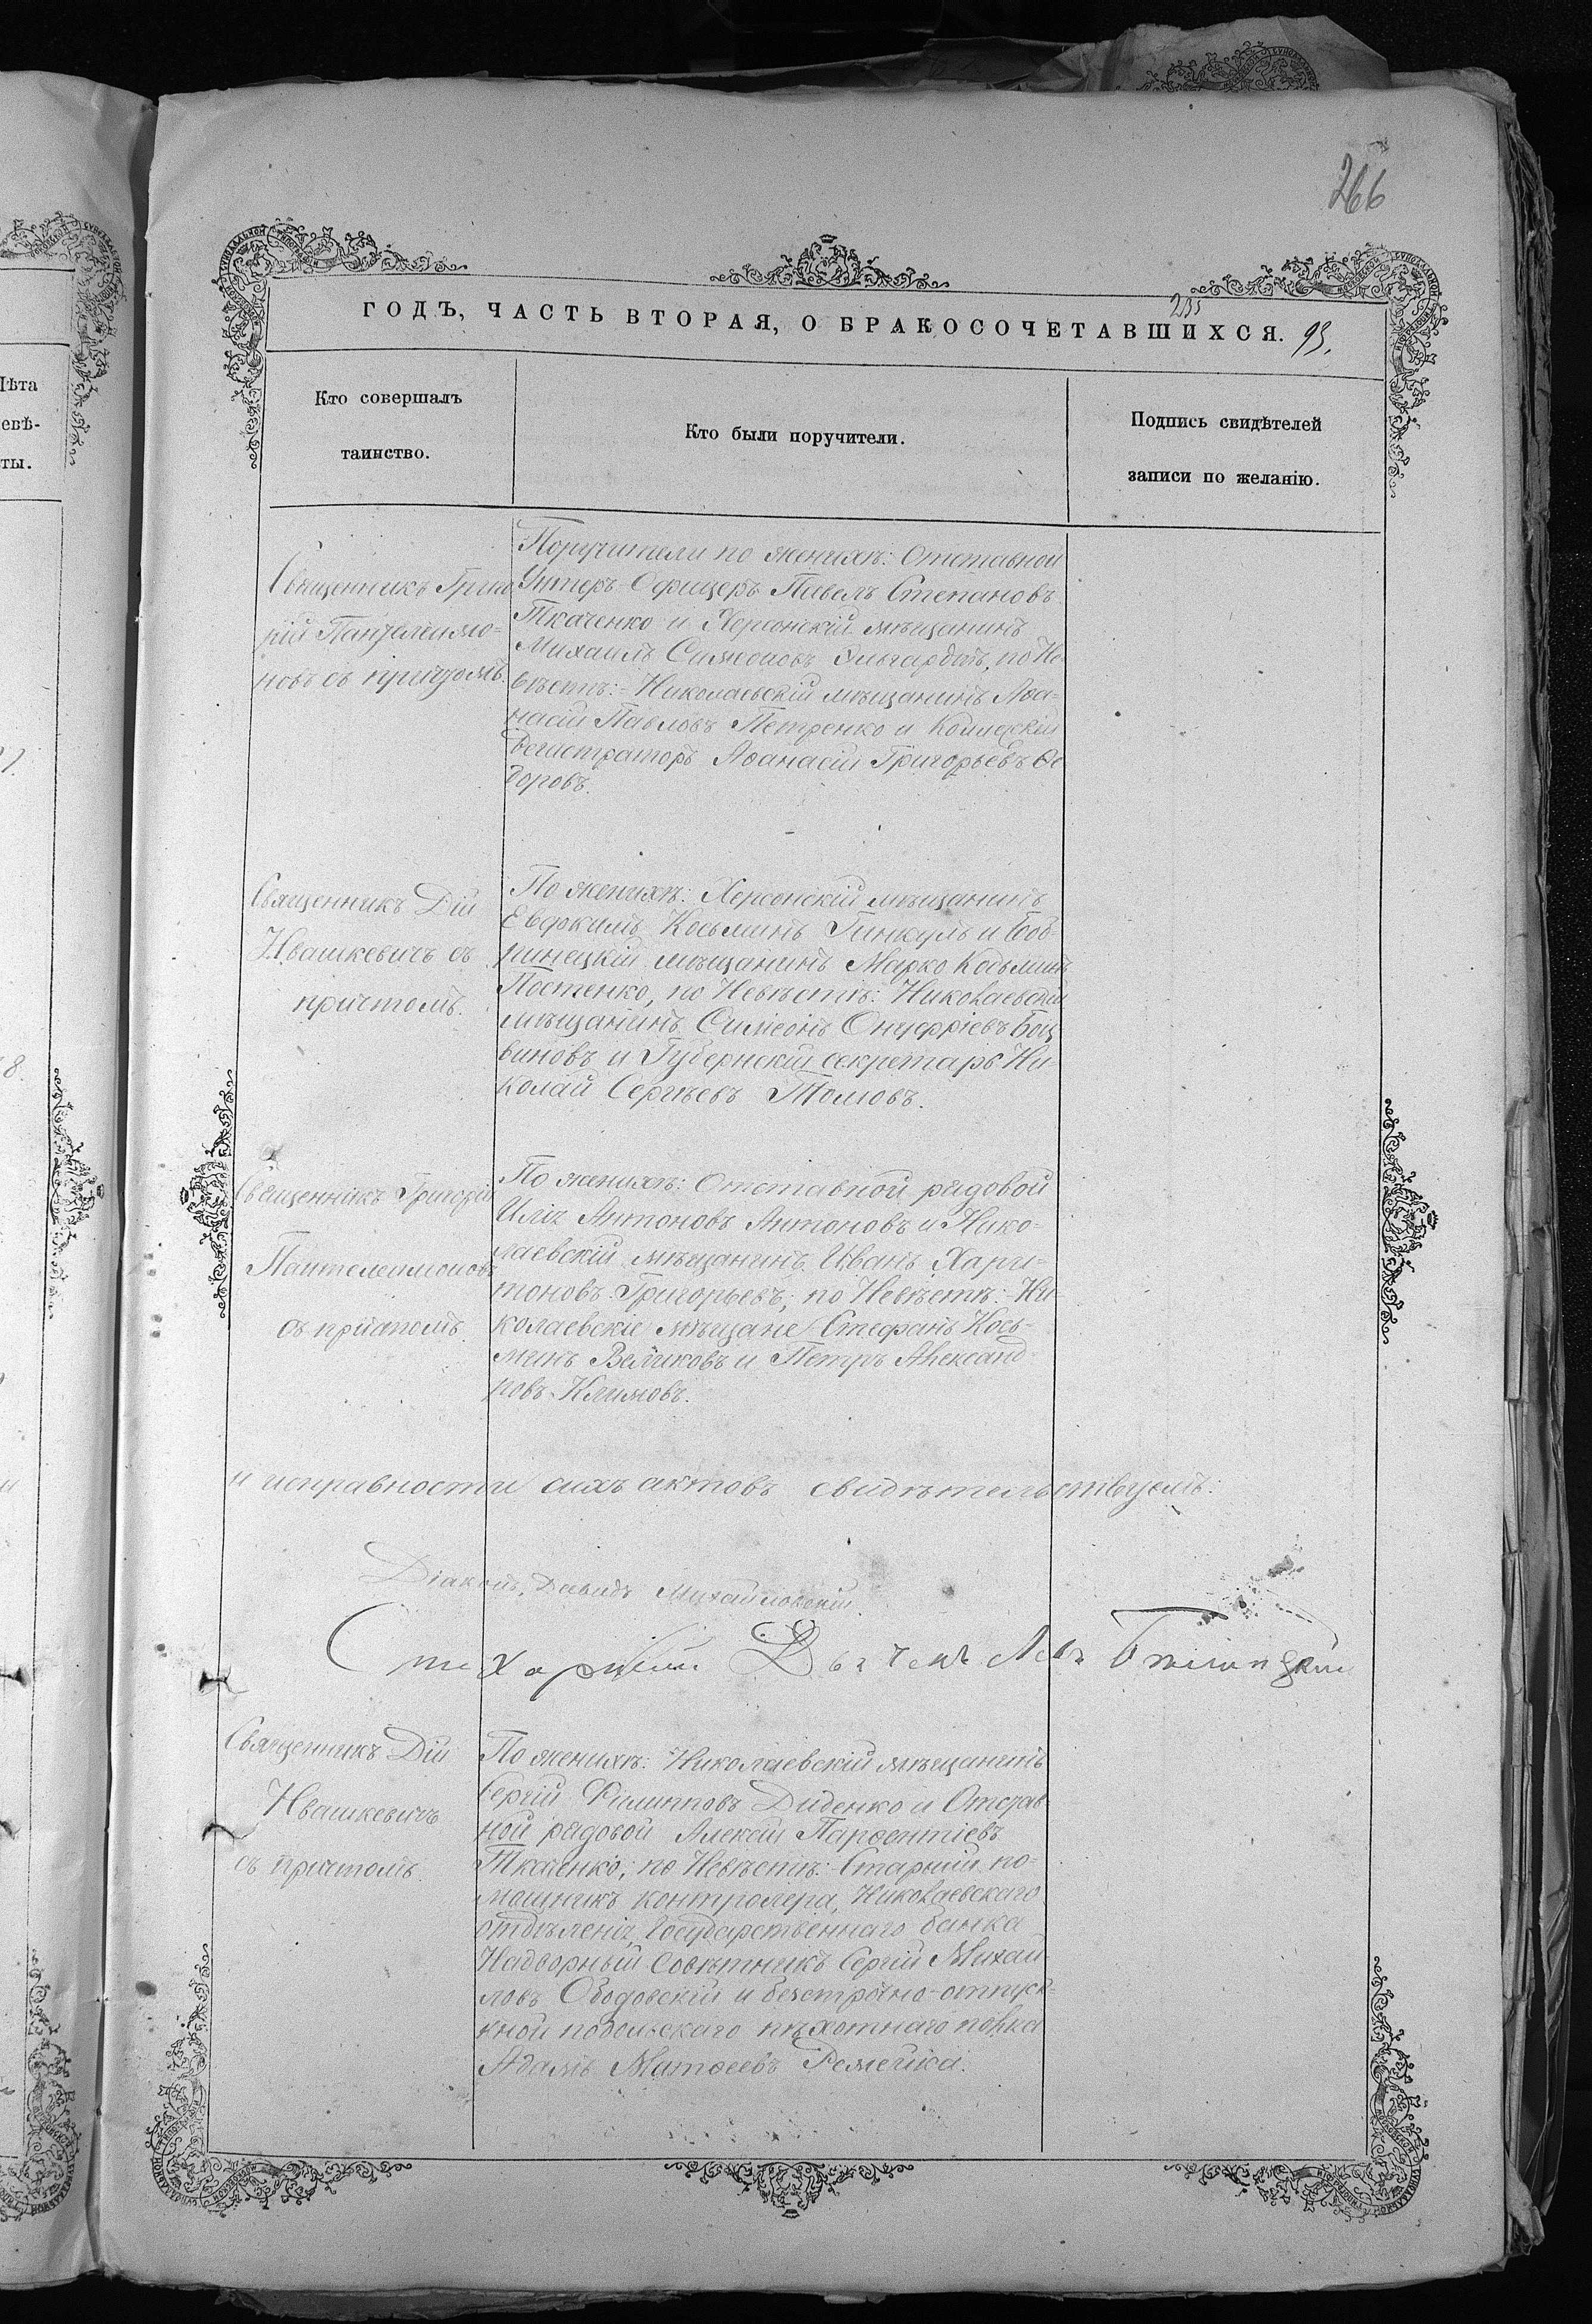 266
ГОДЪ, ЧАСТЬ ВТОРАЯ, О БРАКОСОЧЕТАВШИХСЯ.
235
93.
Кто совершалъ
таинство.
Кто были поручители.
Подпись свидѣтелей
записи по желанію.
Священникъ Григо
рій Пантелеимо=
новъ съ причтомъ.
Поручители по женихѣ: Отставной
Унтеръ-Офицеръ Павелъ Степановъ
Ткаченко и Херсонскій мѣщанинъ
Михаилъ Симеоновъ, по Не
вѣстѣ:- Николаевскій мѣщанинъ Аѳа=
насій Павловъ Петренко и Коллежскій
Регистраторъ Аѳанасій Григорьевъ Ѳе
доровъ.
Священникъ Дій
Ивашкевичъ съ
причтомъ.
По женихѣ: Херсонскій мѣщанинъ
Евфимъ Косьминъ Гинкулъ и Боб-
ринецкій мѣщанинъ Марко Косьминъ
Постенко, по Невѣстѣ: Николаевскій
мѣщанинъ Симеонъ Онуфріевъ Боц
виновъ и Губернскій секретарь Ни-
колай Сергѣевъ Томовъ.
Священникъ Григорій
Пантелеимоновъ
съ причтомъ.
По женихѣ: Отставной рядовой
Илія Антоновъ Антоновъ и Нико-
лаевскій мѣщанинъ Иванъ Хари-
тоновъ Григорьевъ; по Невѣстѣ: Ни
колаевскіе мѣщане Стефанъ Кось-
минъ Великовъ и Петръ Александ-
ровъ Климовъ.
и исправности сихъ актовъ свидѣтельствуемъ:
Діаконъ Давидъ Михайловскій
Стихарный Дьячекъ Левъ
Священникъ Дій
Ивашкевичъ
съ причтомъ.
По женихѣ: Николаевскій мѣщанинъ
Сергій Филипповъ Диденко и Отстав
ной рядовой Алексій Парѳентіевъ
Ткаченко; по Невѣстѣ:- Старшій по-
мощникъ контролера, Николаевскаго
отдѣленія, Государственнаго банка
Надворный Совѣтникъ Сергій Михай-
ловъ Ободовскій и безсрочно-отпуск-
кной подольскаго пѣхотнаго полка
Адамъ Матѳеевъ Ремейка.